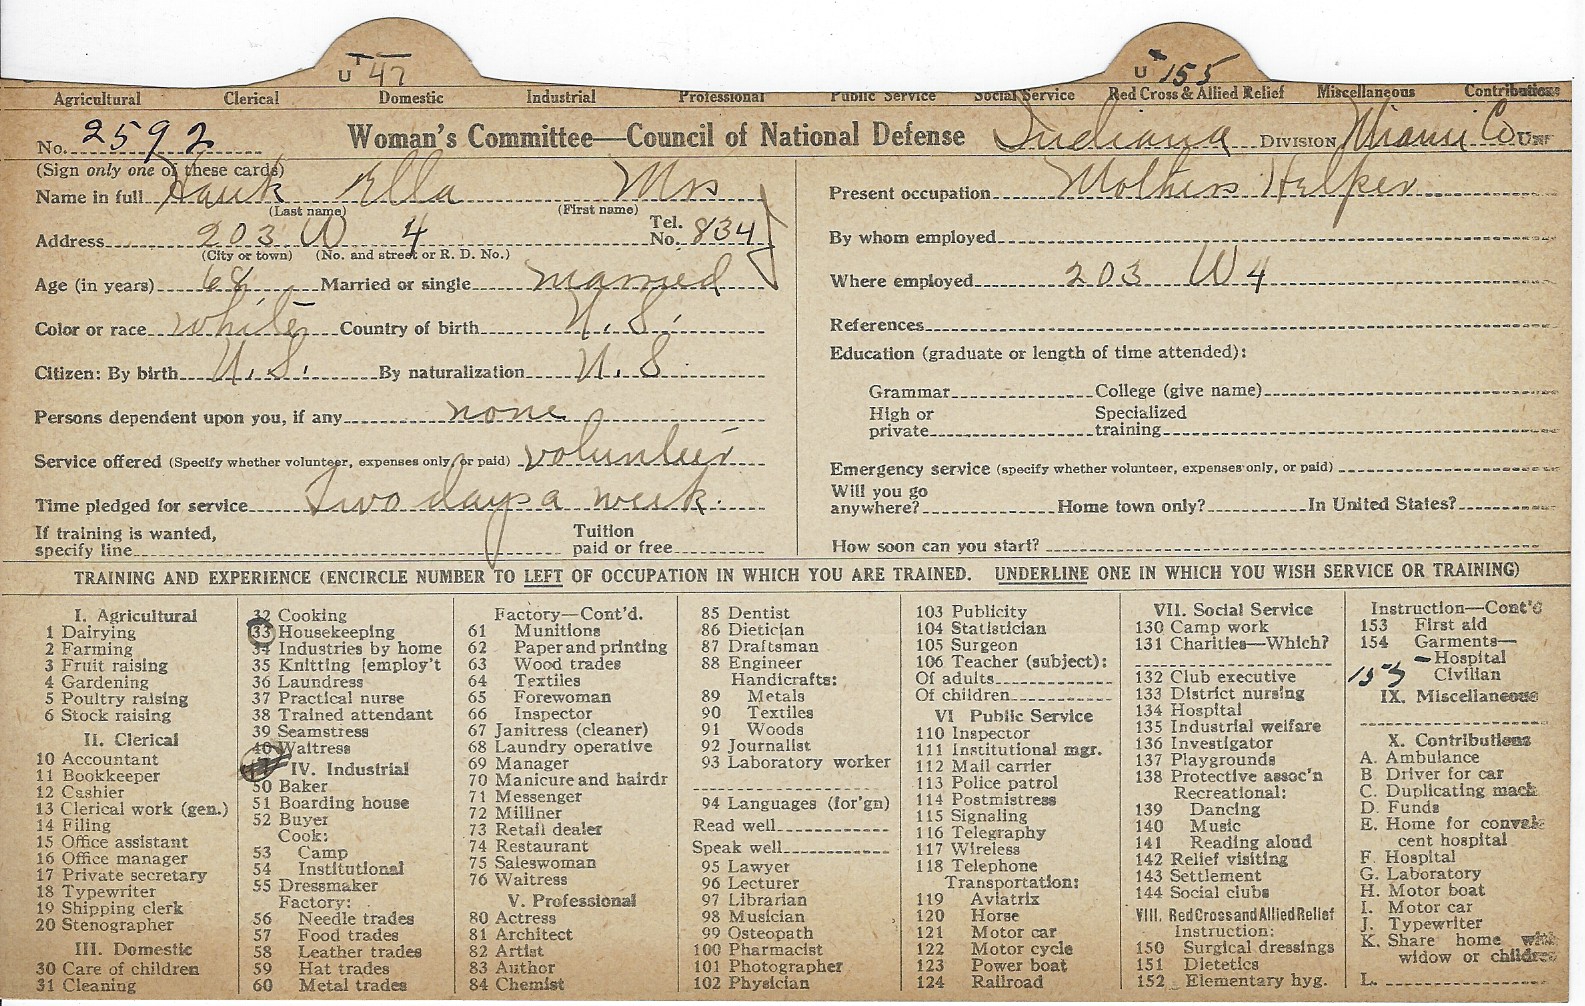 U 47 U 155
Agricultural Clerical Domestic Industrial Professional Public Service Social Service Red Cross & Allied Relief Miscellaneous Contributions
No. 2592 Woman's Committee—Council of National Defense Indiana DIVISION Miami Co UNIT
(Sign only one of these cards)
Name in full Hauk Ella Mrs
(Last name) (First name)
Address 203 W 4 Tel. No. 834 J
(City or town) (No. and street or R. D. No.)
Age (in years) 68 Married or single married
Color or race white Country of birth U. S.
Citizen: By birth U. S. By naturalization U. S
Persons dependent upon you, if any none
Service offered (Specify whether volunteer, expenses only, or paid) volunteer
Time pledged for service Two days a week.
If training is wanted,
specify line Tuition paid or free
Present occupation Mothers Helper
By whom employed
Where employed 203 W 4
References
Education (graduate or length of time attended):
Grammar College (give name)
High or private Specialized training
Emergency service (specify whether volunteer, expenses only, or paid)
Will you go anywhere? Home town only? In United States?
How soon can you start?
TRAINING AND EXPERIENCE (ENCIRCLE NUMBER TO LEFT OF OCCUPATION IN WHICH YOU ARE TRAINED. UNDERLINE ONE IN WHICH YOU WISH SERVICE OR TRAINING)
I. Agricultural
1 Dairying
2 Farming
3 Fruit raising
4 Gardening
5 Poultry raising
6 Stock raising
II. Clerical
10 Accountant
11 Bookkeeper
12 Cashier
13 Clerical work (gen.)
14 Filing
15 Office assistant
16 Office manager
17 Private secretary
18 Typewriter
19 Shipping clerk
20 Stenographer
III. Domestic
30 Care of children
31 Cleaning
32 Cooking
33 Housekeeping
34 Industries by home
35 Knitting [employ't
36 Laundress
37 Practical nurse
38 Trained attendant
39 Seamstress
40 Waitress
IV. Industrial
50 Baker
51 Boarding house
52 Buyer
Cook:
53 Camp
54 Institutional
55 Dressmaker
Factory:
56 Needle trades
57 Food trades
58 Leather trades
59 Hat trades
60 Metal trades
Factory—Cont'd.
61 Munitions
62 Paper and printing
63 Wood trades
64 Textiles
65 Forewoman
66 Inspector
67 Janitress (cleaner)
68 Laundry operative
69 Manager
70 Manicure and hairdr
71 Messenger
72 Milliner
73 Retail dealer
74 Restaurant
75 Saleswoman
76 Waitress
V. Professional
80 Actress
81 Architect
82 Artist
83 Author
84 Chemist
85 Dentist
86 Dietician
87 Draftsman
88 Engineer
Handicrafts:
89 Metals
90 Textiles
91 Woods
92 Journalist
93 Laboratory worker
94 Languages (for'gn)
Read well
Speak well
95 Lawyer
96 Lecturer
97 Librarian
98 Musician
99 Osteopath
100 Pharmacist
101 Photographer
102 Physician
103 Publicity
104 Statistician
105 Surgeon
106 Teacher (subject):
Of adults
Of children
VI Public Service
110 Inspector
111 Institutional mgr.
112 Mail carrier
113 Police patrol
114 Postmistress
115 Signaling
116 Telegraphy
117 Wireless
118 Telephone
Transportation:
119 Aviatrix
120 Horse
121 Motor car
122 Motor cycle
123 Power boat
124 Railroad
VII. Social Service
130 Camp work
131 Charities—Which?
132 Club executive
133 District nursing
134 Hospital
135 Industrial welfare
136 Investigator
137 Playgrounds
138 Protective assoc'n
Recreational:
139 Dancing
140 Music
141 Reading aloud
142 Relief visiting
143 Settlement
144 Social clubs
VIII. Red Cross and Allied Relief
Instruction:
150 Surgical dressings
151 Dietetics
152 Elementary hyg.
Instruction—Cont'd
153 First aid
154 Garments—
Hospital
155 Civilian
IX. Miscellaneous
X. Contributions
A. Ambulance
B Driver for car
C. Duplicating mach
D. Funds
E. Home for convales
cent hospital
F. Hospital
G. Laboratory
H. Motor boat
I. Motor car
J. Typewriter
K. Share home with
widow or children
L.